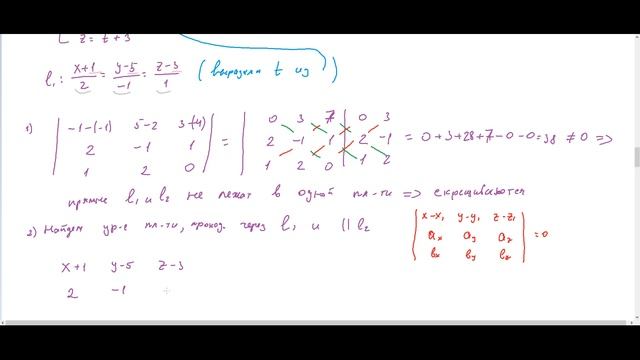 z = t + 3
l₁: x+1/2 = y-5/-1 = z-3/1 (выразили t из )
1) | -1-(-1) 5-2 3-(-4) | = | 0 3 7 | 0 3
| 2 -1 1 | | 2 -1 1 | 2 -1 = 0+3+28+7-0-0=38 ≠ 0 =>
| 1 2 0 | | 1 2 0 | 1 2
прямые l₁ и l₂ не лежат в одной пл-ти => скрещиваются
2) Найдем ур-е пл-ти, проход. через l₁ и || l₂
| x-x₁ y-y₁ z-z₁ |
| aₓ a_y a_z | = 0
| bₓ b_y b_z |
x+1 y-5 z-3
2 -1